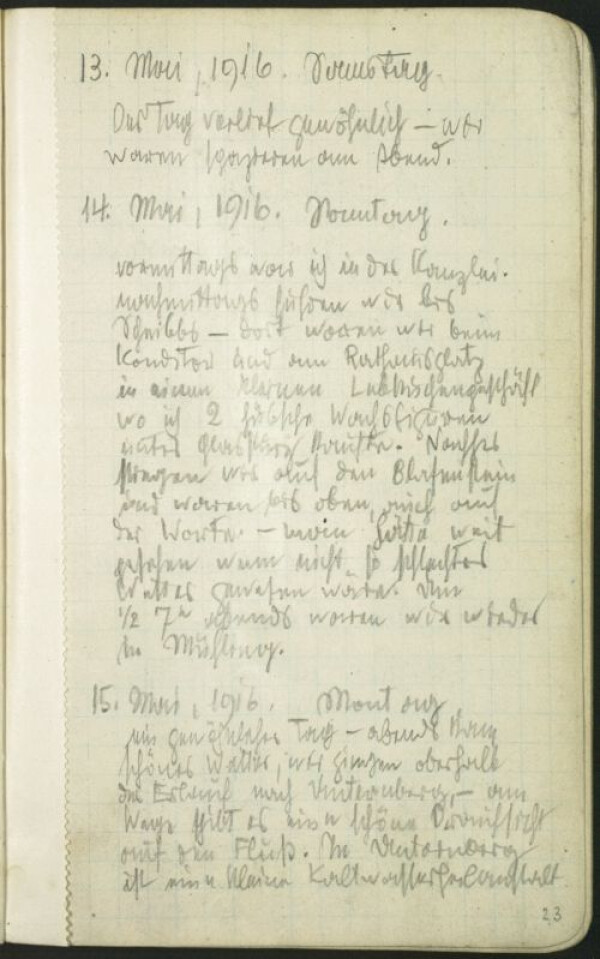 13. Mai, 1916. Samstag.
Der Tag verlief gewöhnlich — wir
waren spazieren am Abend.
14. Mai, 1916. Sonntag.
vormittags war ich in der Kanzlei.
nachmittags fuhren wir bis
Scheibbs — dort waren wir beim
Konditor und am Rathausplatz
in einem kleinen Lebkuchengeschäft
wo ich 2 hübsche Wachsfiguren
unter Glas kaufte. Nachher
stiegen wir auf den Blasenstein
und waren bis oben, auch auf
der Warte. — man hätte weit
gesehen wenn nicht so schlechtes
Wetter gewesen wäre. Um
1/2 7h abends waren wir wieder
in Mühling.
15. Mai, 1916. Montag
ein gewöhnlicher Tag — abends kam
schönes Wetter, wir giengen oberhalb
der Erlauf nach Unternberg, — am
Wege gibt es eine schöne Draufsicht
auf den Fluß. In Unternberg
ist eine kleine Kaltwasserheilanstalt
23